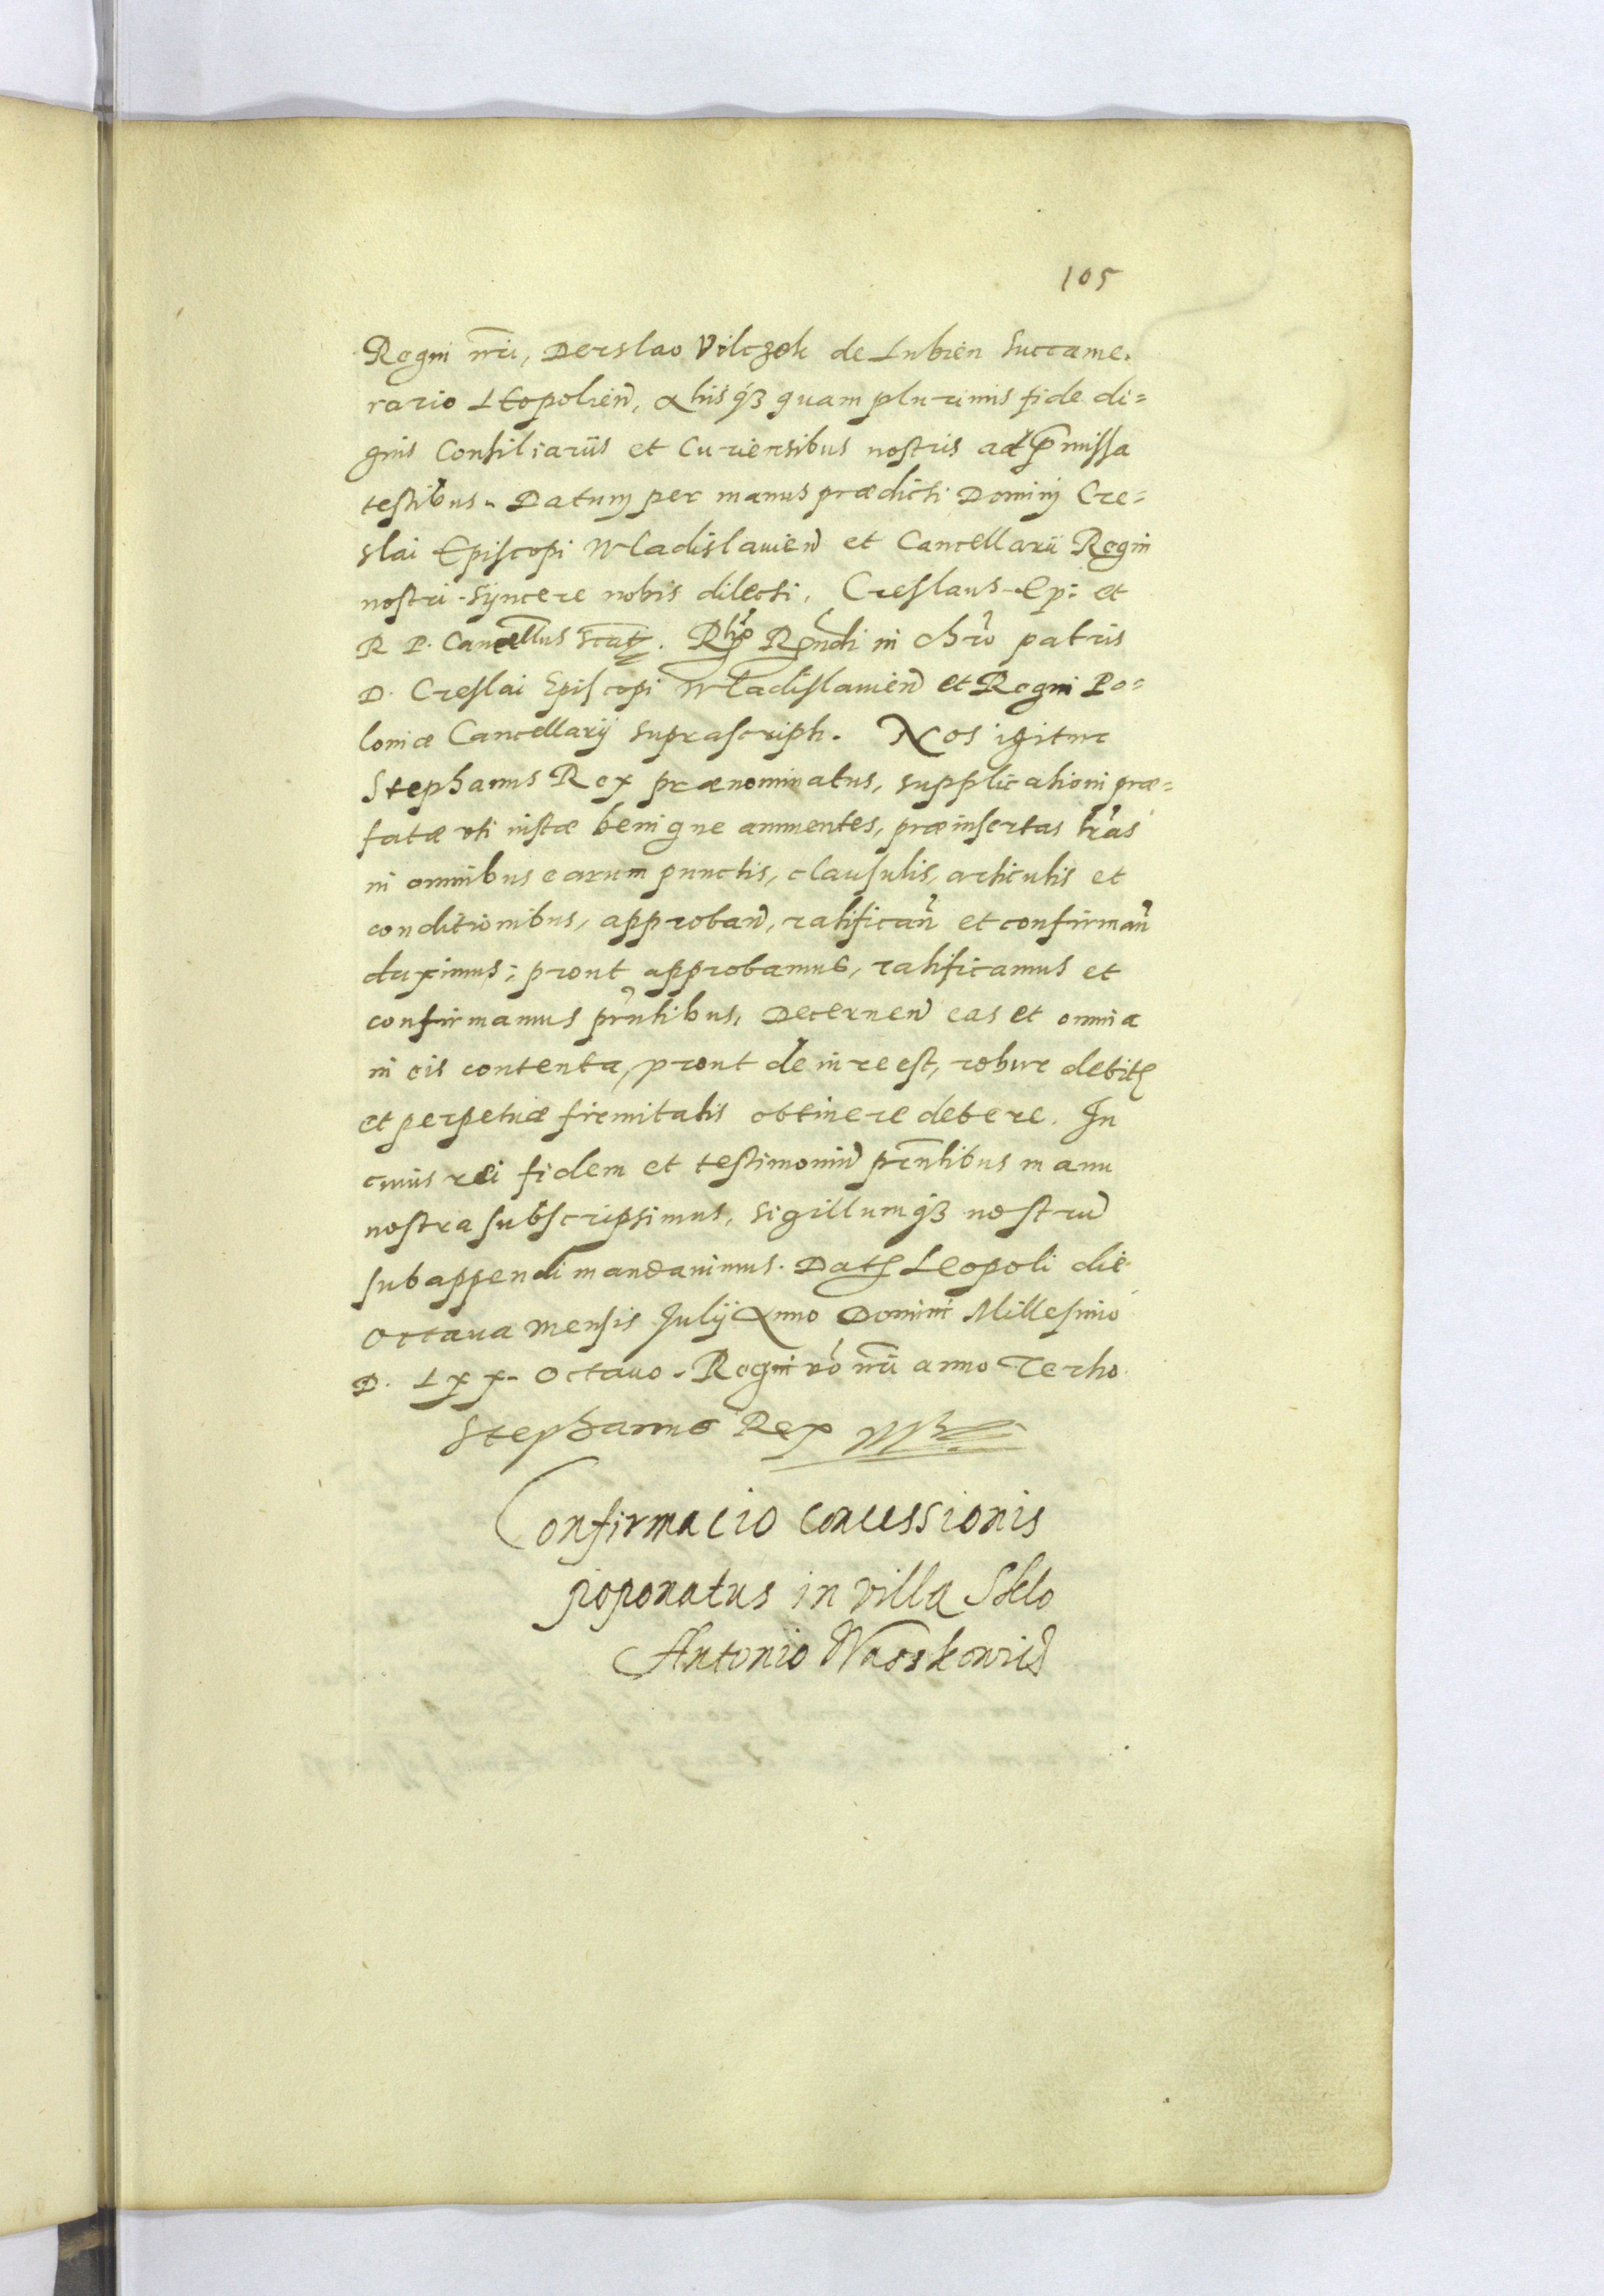 105
Regni nr̃i, Derslao Vilczek de Lubien Succame-
rario Leopolien̄, Alijsq́ꝫ quam plurimis fide di=
gnis Consiliariis et Curiensibus nostris ad p̄missa
testibus. Datum per manus prædicti Domini Cre=
slai Episcopi Wladislauien̄ et Cancellarii Regni
nostri Syncere nobis dilecti, Creslaus Ep: et
R P. Cancellus Rn̄di in chrō patris
D. Creslai Episcopi Wladislauien̄ et Regni Po=
loniæ Cancellarij suprascripti. Nos igitur
Stephanus Rex prænominatus, supplicationi præ=
fatæ uti iustæ benigne annuentes, præinsertas lr̃as
in omnibus earum punctis, clausulis, articulis et
conditionibus, approban̄, ratifican̄ et confirman̄
duximus; prout approbamus, ratificamus et
confirmamus pn̄tibus, Decernen̄ eas et omnia
in eis contenta, prout de iure est, robur debitę
et perpetuæ firmitatis obtinere debere. In
cuius rei fidem et testimoniū pn̄tibus manu
nostra subscripsimus, Sigillumq́ꝫ nostrū
subappendi mandauimus. Datꝭ Leopoli die
Octaua mensis Julij Anno Domini Millesimo
D. Lxx. Octauo. Regni vō nr̃i anno Tertio.
Stephanus Rex
Confirmacio concessionis
poponatus in villa Sklo
Antonio Waoskowicz